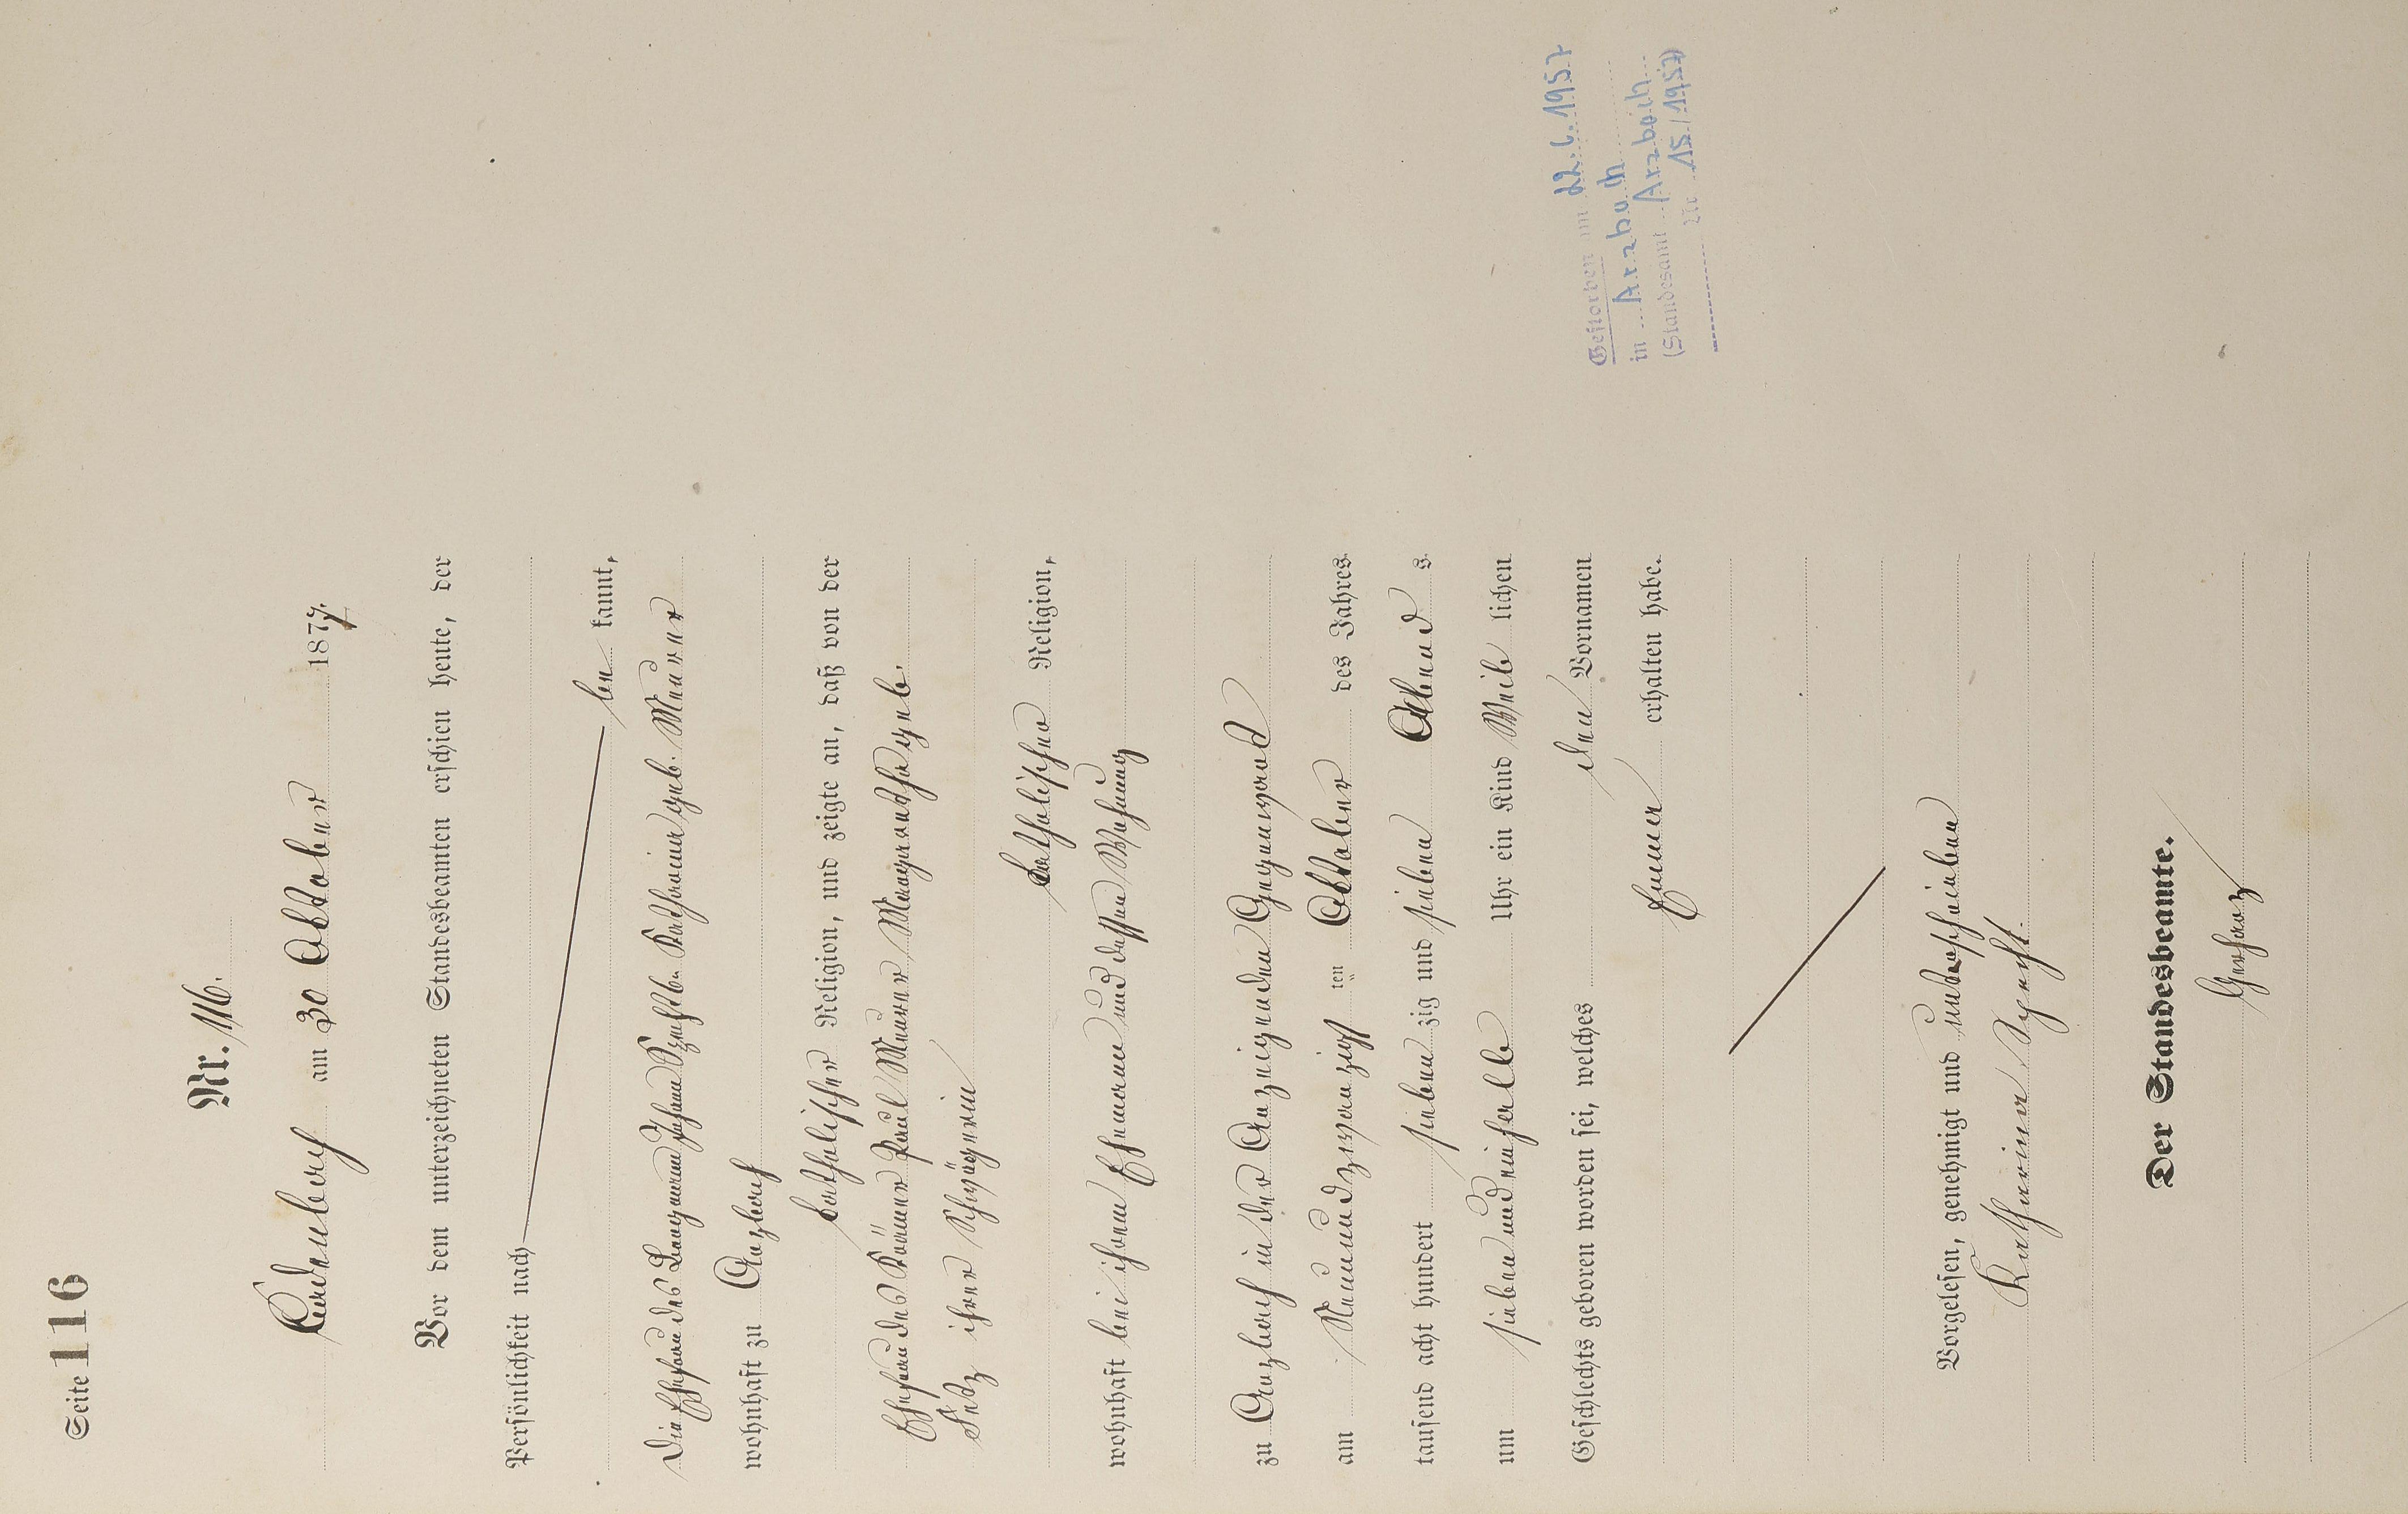 Seite 116
Nr. 116.
Kadenbach am 30 Oktober 1877.
Vor dem unterzeichneten Standesbeamten erschien heute, der
Persönlichkeit nach
be kannt,
die Ehefrau des Bergmann Johann Katharina geb. Meurer
wohnhaft zu Arzbach
katholischer Religion, und zeigte an, daß von der
Ehefrau des Krämer Paul Meurer Margaretha geb.
ihrer Schwägerin
katholischer Religion,
wohnhaft bei ihrem Ehemann und dessen Wohnung
zu Arzbach in der Anzeigenden Gegenwart
am Neunundzwanzigsten Oktober des Jahres
tausend acht hundert sieben zig und sieben Abend s
um sieben und einhalb Uhr ein Kind Weib lichen
Geschlechts geboren worden sei, welches den Vornamen
Emma erhalten habe.
Vorgelesen, genehmigt und unterschrieben
Katharina
Der Standesbeamte.
Gerharz
Gestorben am 22.6.1957
in Arzbach
(Standesamt Arzbach
Nr 15/1957)